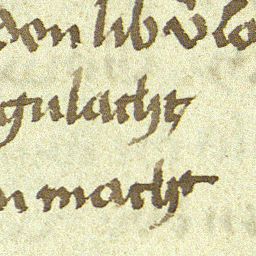 den lib v̄lo
gulacht
n macht